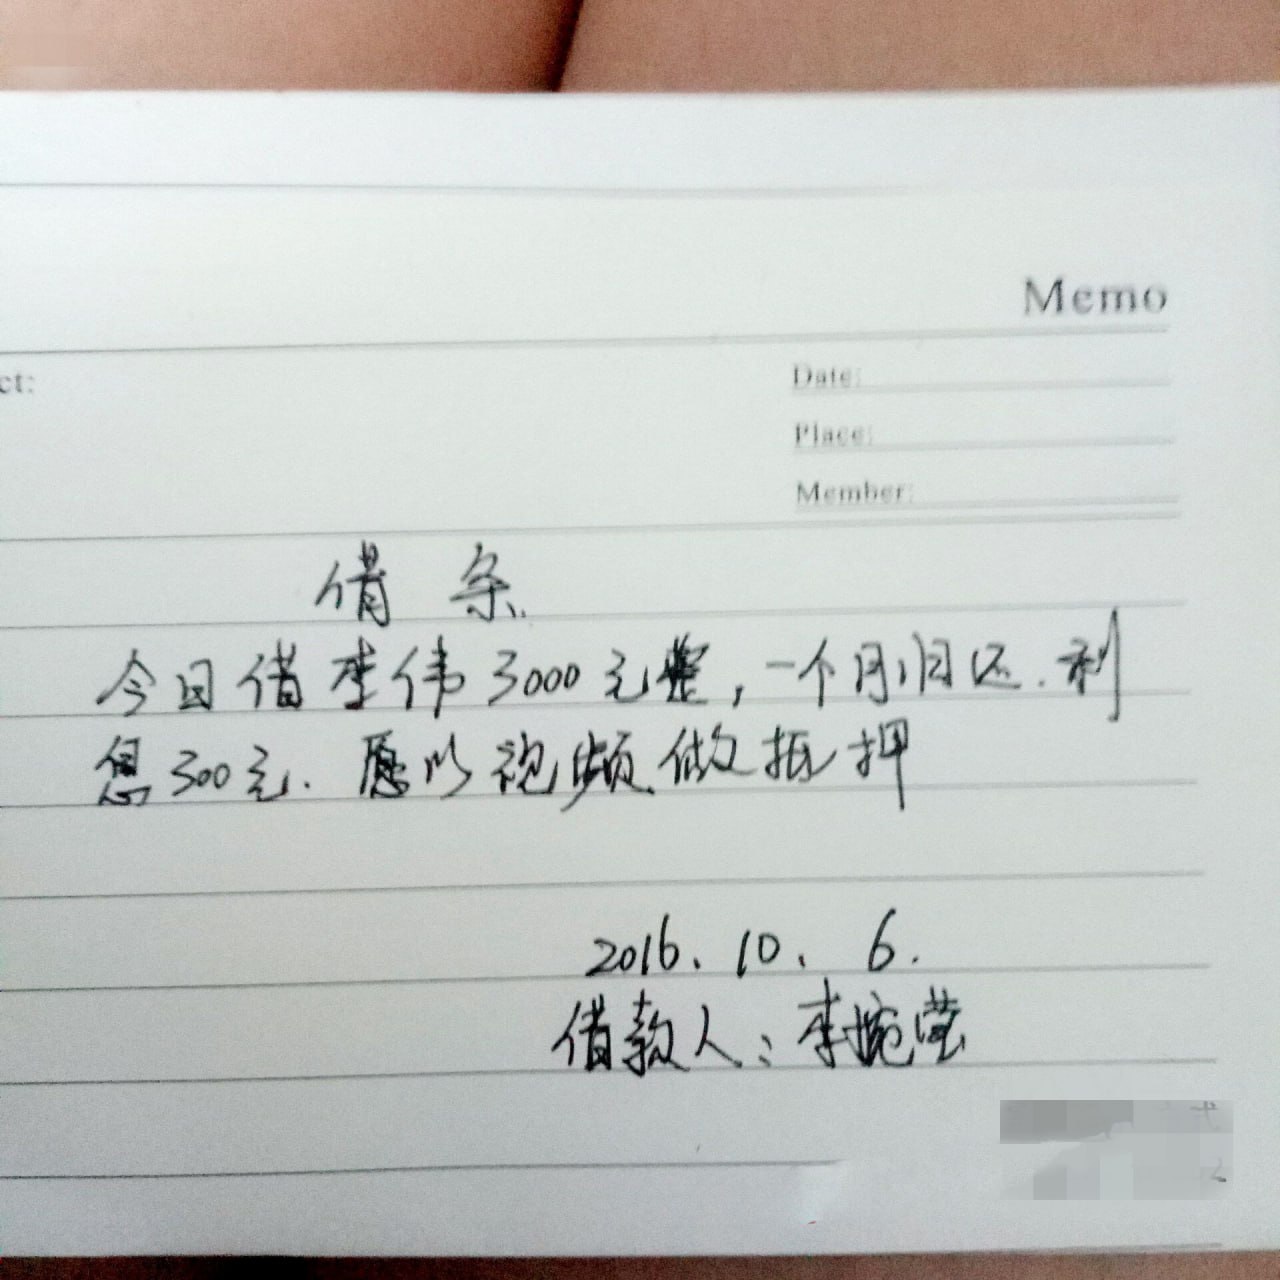 Memo
ct:
Date:
Place:
Member:
借条
今日借李伟3000元整，一个月归还.利
息300元.愿以视频做抵押
2016.10.6.
借款人：李婉莹
式